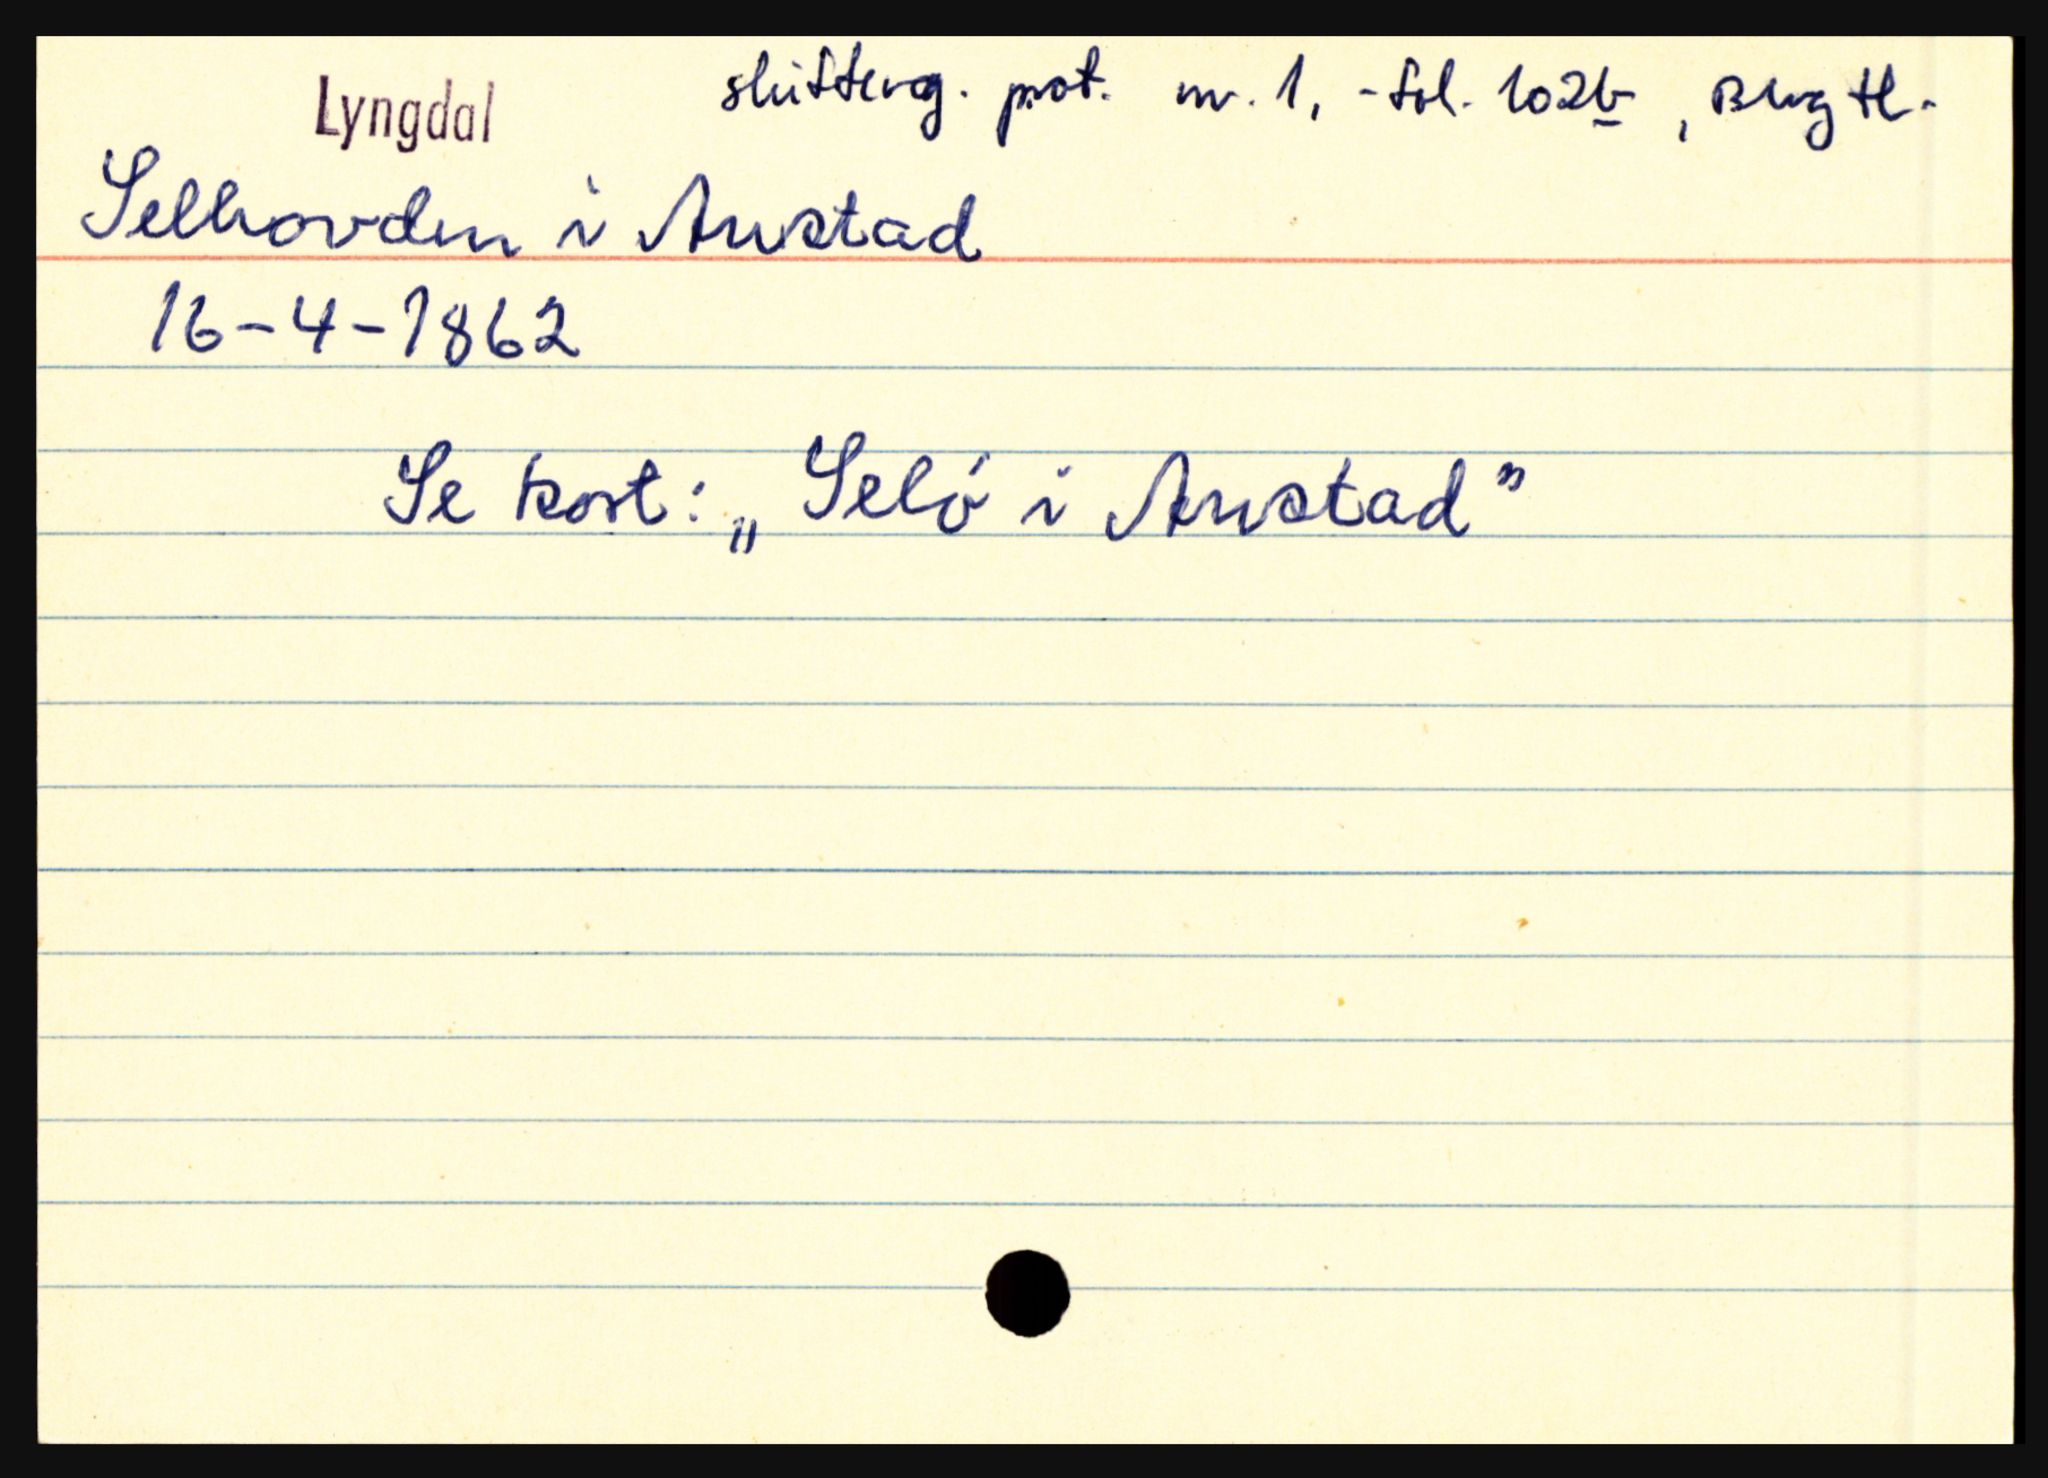 Lyngdal skiftereg. prot. nr. 1, - fol. 102b,
Selhovden i Austad
16-4-1862
Se kort: „Selö i Austad”